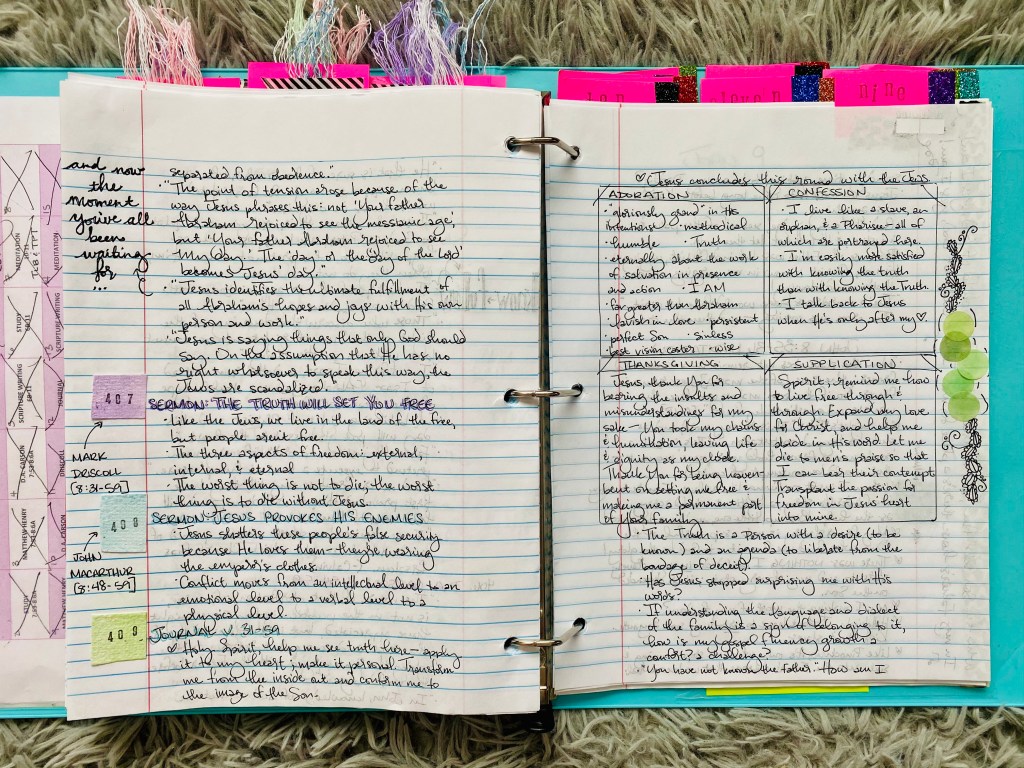 ten
eleven
nine
8
MEDITATION
JCB & TPT
STUDY
8D-11
SCRIPTURE WRITING
D.A. CARSON
MATTHEW HENRY
STUDY
15
MEDITATION
SCRIPTURE WRITING
13
JOURNAL
DRISCOLL
D.A. CARSON
MATTHEW HENRY
and now
the
moment
you've all
been
waiting
for
...
separated from obedience."
· "The point of tension arose because of the
way Jesus phrases this: not 'Your father
Abraham rejoiced to see the messianic age,'
but 'Your father Abraham rejoiced to see
My day.' The 'day' or 'the day of the Lord'
becomes Jesus' day."
· "Jesus identifies the ultimate fulfillment of
all Abraham's hopes and joys with His own
person and work."
· "Jesus is saying things that only God should
say. On the assumption that He has no
right whatsoever to speak this way, the
Jews are scandalized.
407
SERMON: THE TRUTH WILL SET YOU FREE
· Like the Jews, we live in the land of the free,
but people aren't free.
· The three aspects of freedom: external,
internal, & eternal
· The worst thing is not to die; the worst
thing is to die without Jesus.
MARK
DRISCOLL
[8:31-59]
408
SERMON: JESUS PROVOKES HIS ENEMIES
· Jesus shatters these people's false security
because He loves them - they're wearing
the emperor's clothes.
· Conflict moves from an intellectual level to an
emotional level to a verbal level to a
physical level
JOHN
MACARTHUR
[8:48-59]
409
JOURNAL V. 31-59
♡ Holy Spirit, help me see truth here - apply
it to my heart; make it personal. Transform
me from the inside out and conform me to
the image of the Son.
♡ (Jesus concludes this round with the Jews.
ADORATION
· "gloriously grand" in His
intentions! · methodical
· humble · Truth
· eternally about the work
of salvation in presence
and action · I AM
· far greater than Abraham
· lavish in love · persistent
· perfect Son · sinless
· best vision caster · wise
CONFESSION
· I live like a slave, an
orphan, & a Pharisee - all of
which are portrayed here.
· I'm easily more satisfied
with knowing the truth
than with knowing the Truth.
· I talk back to Jesus
when He's only after my ♡.
THANKSGIVING
Jesus, thank You for
bearing the insults and
misunderstandings for my
sake - You took my chains
& humiliation, leaving life
& dignity as my cloak.
Thank You for being heaven-
bent on setting me free &
making me a permanent part
of Your family.
SUPPLICATION
Spirit, remind me how
to live free through &
through. Expand my love
for Christ, and help me
abide in His word. Let me
die to men's praise so that
I can bear their contempt.
Transplant the passion for
freedom in Jesus' heart
into mine.
· The Truth is a Person with a desire (to be
known) and an agenda (to liberate from the
bondage of deceit).
· Has Jesus stopped surprising me with His
words?
· If understanding the language and dialect
of the family is a sign of belonging to it,
how is my gospel fluency growth a
comfort? a challenge?
· "You have not known the Father." How am I